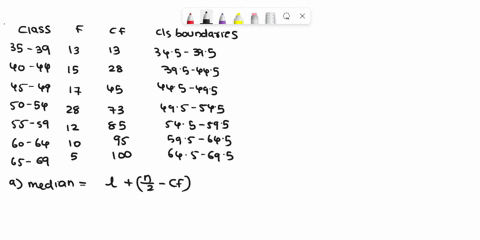 Class F CF Cls boundaries
35-39 13 13 34.5-39.5
40-44 15 28 39.5-44.5
45-49 17 45 44.5-49.5
50-54 28 73 49.5-54.5
55-59 12 85 54.5-59.5
60-64 10 95 59.5-64.5
65-69 5 100 64.5-69.5
a) median = l + (n/2 - CF)